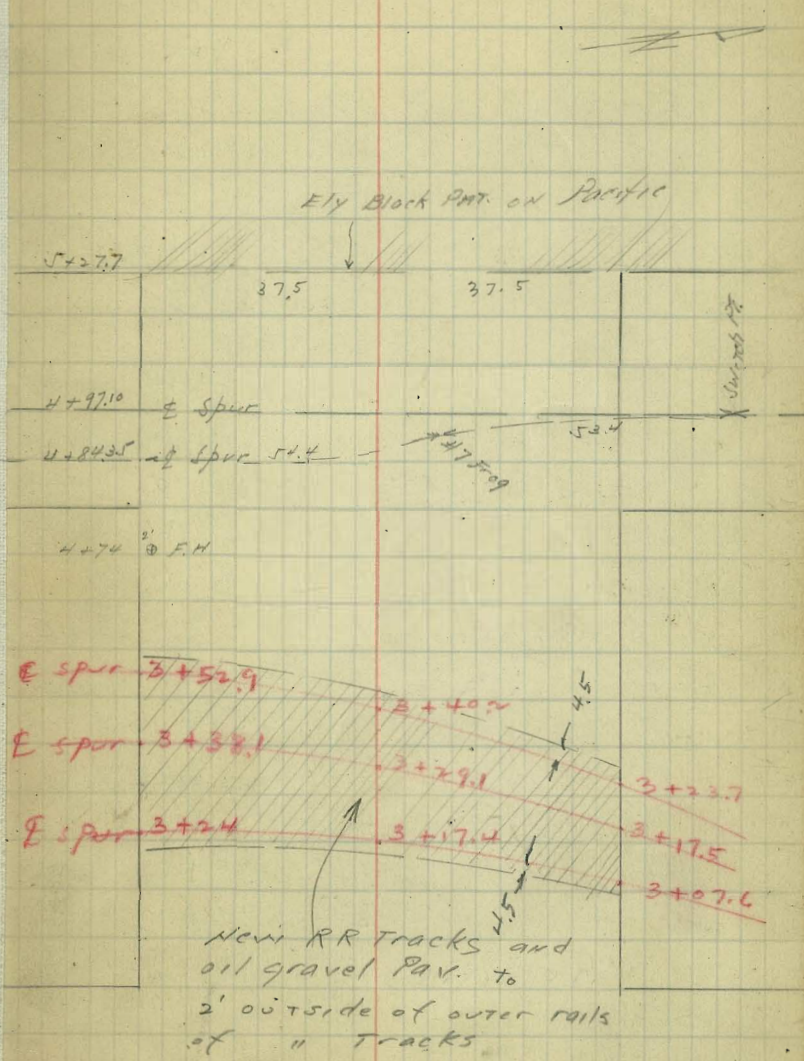 Ely Block PMT. on Pacific
5+27.7
37.5 37.5
Switch Pt.
4+97.10 ℄ Spur
53.4
4+84.35 ℄ Spur 54.4
#7 Frog
2'
4+74 ⊕ F.H
℄ spur 3+52.9
3+40.2
4.5
℄ spur 3+38.1
3+29.1
3+23.7
℄ spur 3+24
3+17.4
3+17.5
3+07.6
4.5
New RR Tracks and
oil gravel Pav. to
2' outside of outer rails
of " Tracks